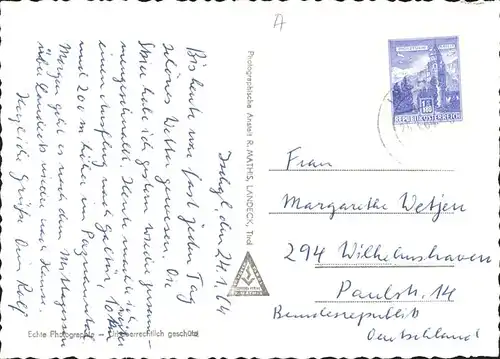 A
Ischgl, den 24.1.64
Bis heute war fast jeden Tag
schönes Wetter gewesen. Die
Skier habe ich gestern wieder
angeschnallt. Heute mache ich
einen Ausflug nach Galtür, 10 km
und 200 m höher im Paznauntal.
Morgen geht es nach dem Mittagessen
über Landeck wieder nach Hause.
Herzliche Grüße Dein Rolf
Photographische Anstalt R. MATHIS, LANDECK, Tirol
Echte Photographie – Urheberrechtlich geschützt
REPUBLIK ÖSTERREICH
Frau
Margarethe Wetjen
294 Wilhelmshaven
Paulstr. 14
Bundesrepublik
Deutschland